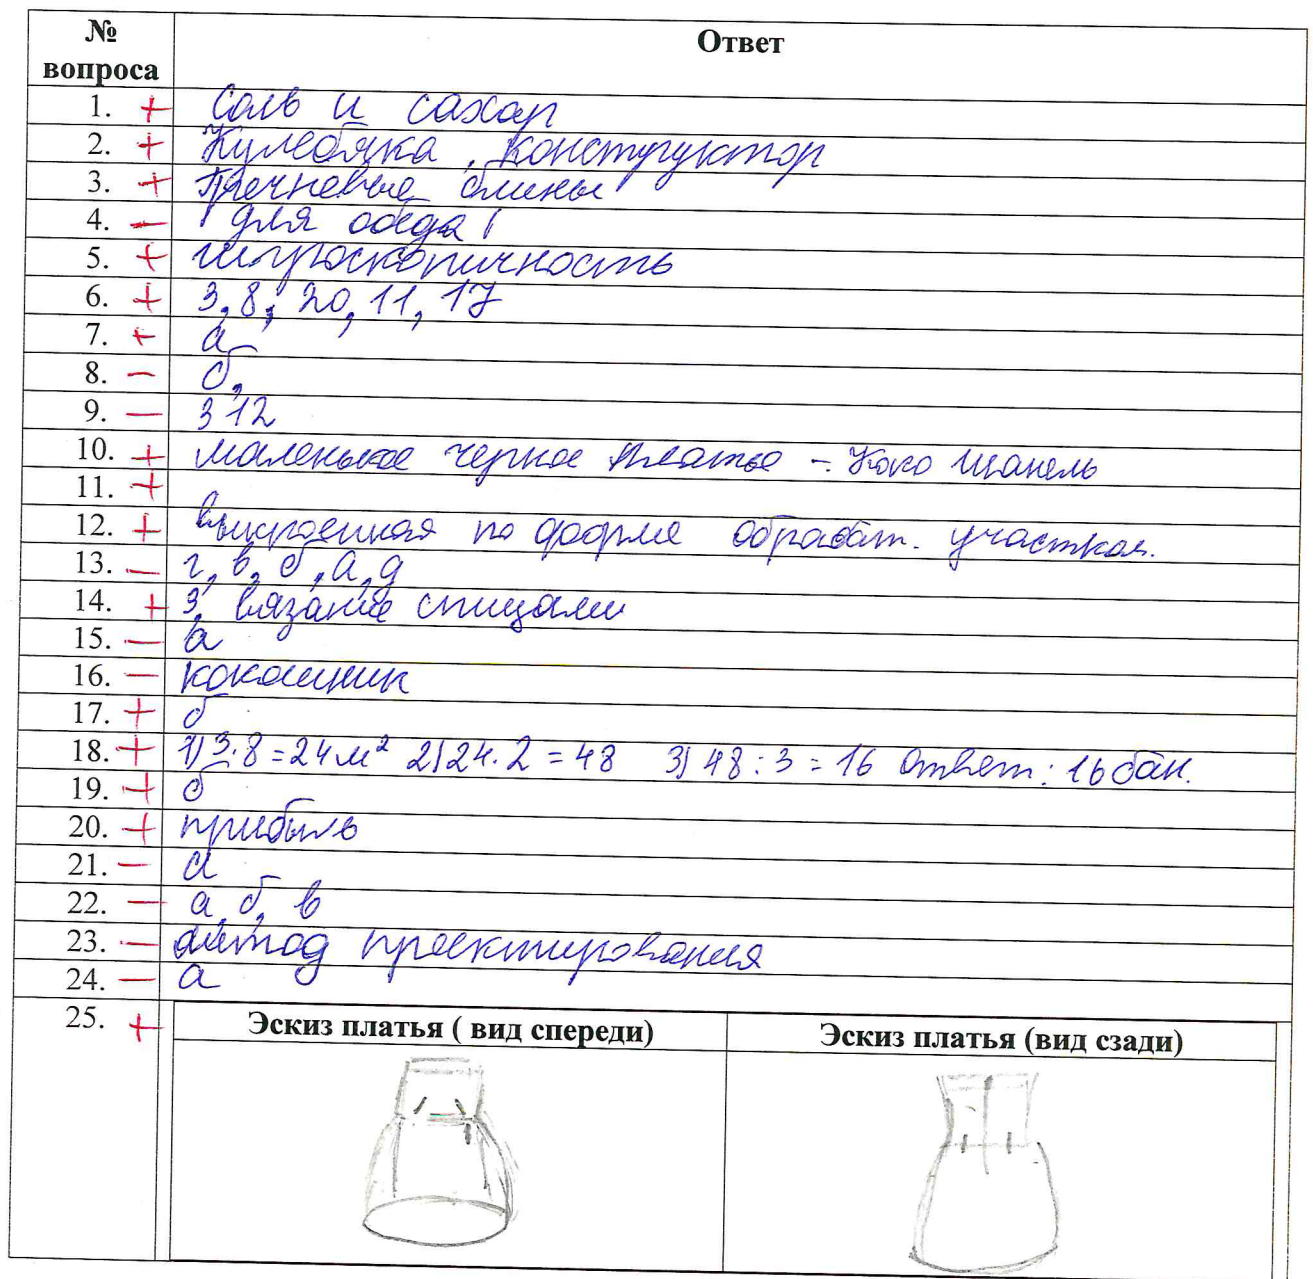 № вопроса Ответ
1. + Соль и сахар
2. + Кулебяка, конструктор
3. + Гречневые блины
4. — для обеда
5. + гигроскопичность
6. + 3, 8, 20, 11, 17
7. + а
8. — б,
9. — 312
10. + маленькое черное платье – Коко Шанель
11. +
12. + выкроенная по форме обработ. участком.
13. — г, в, б, а, д
14. + 3, вязание спицами
15. — а
16. — кокошник
17. + б
18. + 1) 3·8=24м² 2) 24·2=48 3) 48:3=16 Ответ: 16 бан.
19. + б
20. + прибыль
21. — а
22. — а, б, в
23. — метод проектирования
24. — а
25. + Эскиз платья ( вид спереди) Эскиз платья (вид сзади)